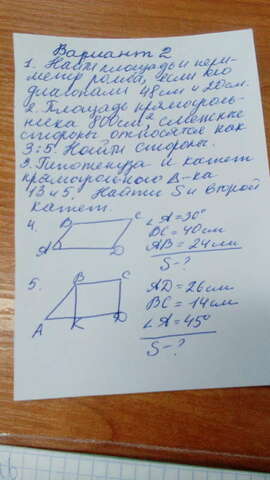 Вариант 2
1. Найти площадь и пери-
метр ромба, если его
диагонали 48см и 20см.
2. Площадь прямоуголь-
ника 800см² смежные
стороны относятся как
3:5. Найти стороны.
3. Гипотенуза и катет
прямоугольного Δ-ка
13 и 5. Найти S и второй
катет.
4. B C A D
∠A=30°
BC=40см
AB=24см
S-?
5. B C A K D
AD=26см
BC=14см
∠A=45°
S-?